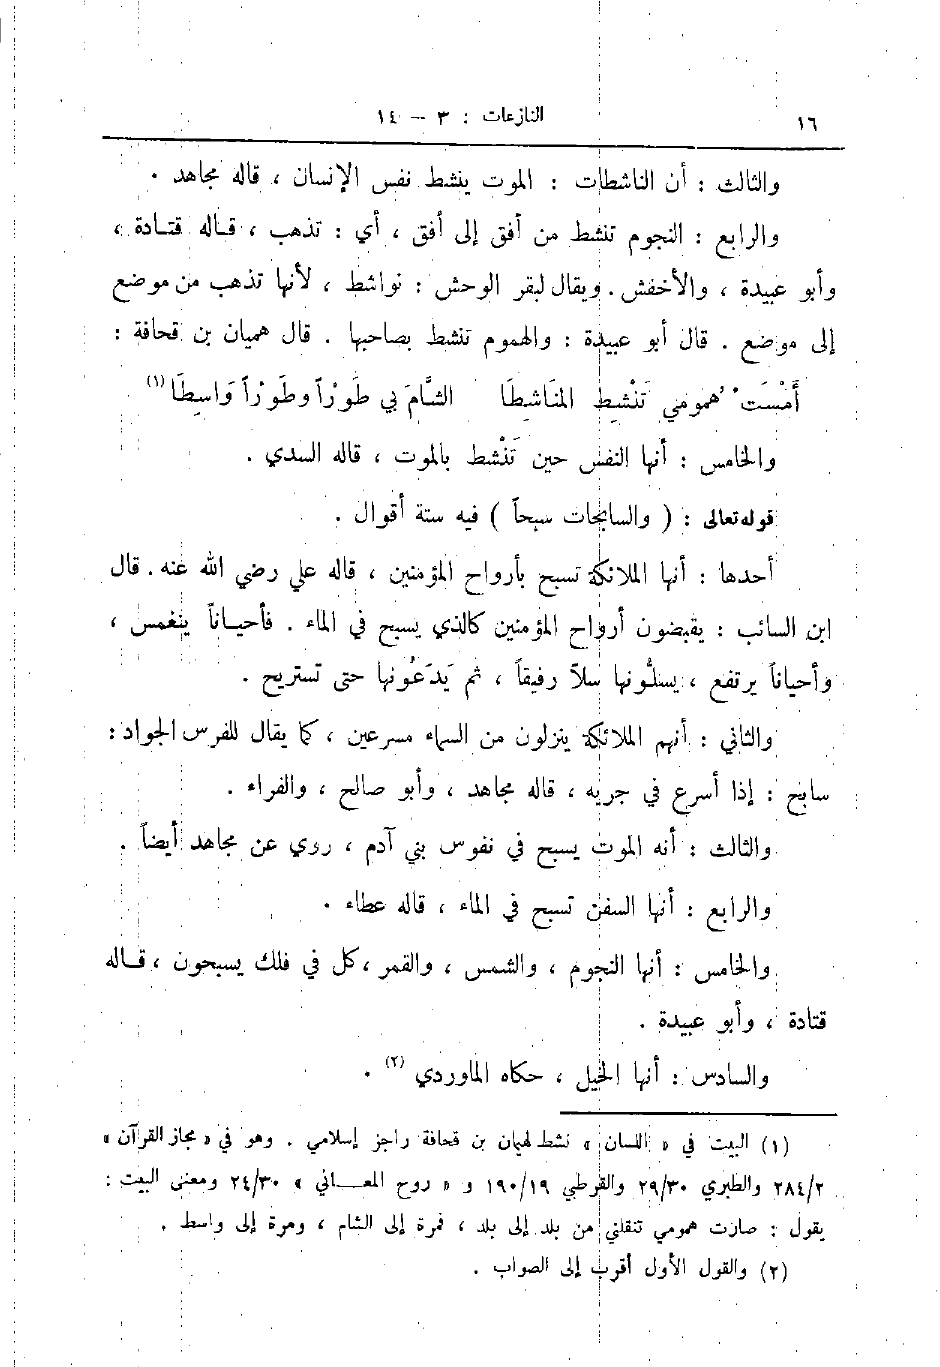 ١٦
النازعات : ٣ - ١٤
والثالث : أن الناشطات : الموت ينشط نفس الإنسان ، قاله مجاهد .
والرابع : النجوم تنشط من أفق إلى أفق ، أي : تذهب ، قاله قتادة ،
وأبو عبيدة ، والأخفش . ويقال لبقر الوحش : نواشط ، لأنها تذهب من موضع
إلى موضع . قال أبو عبيدة : والهموم تنشط بصاحبها . قال هميان بن قحافة :
أَمْسَتْ هُمومي تَنْشِط المَنَاشِطَا الشَّامَ بي طَوْراً وطَوْراً وَاسِطَا (١)
والخامس : أنها النفس حين تَنْشط بالموت ، قاله السدي .
قوله تعالى : ( والسابحات سبحاً ) فيه ستة أقوال .
أحدها : أنها الملائكة تسبح بأرواح المؤمنين ، قاله علي رضي الله عنه . قال
ابن السائب : يقبضون أرواح المؤمنين كالذي يسبح في الماء . فأحياناً ينغمس ،
وأحياناً يرتفع ، يسلُّونها سلاً رفيقاً ، ثم يَدَعُونها حتى تستريح .
والثاني : أنهم الملائكة ينزلون من السماء مسرعين ، كما يقال للفرس الجواد :
سابح : إذا أسرع في جريه ، قاله مجاهد ، وأبو صالح ، والفراء .
والثالث : أنه الموت يسبح في نفوس بني آدم ، روي عن مجاهد أيضاً .
والرابع : أنها السفن تسبح في الماء ، قاله عطاء .
والخامس : أنها النجوم ، والشمس ، والقمر ، كل في فلك يسبحون ، قاله
قتادة ، وأبو عبيدة .
والسادس : أنها الخيل ، حكاه الماوردي (٢) .
(١) البيت في « اللسان » نشط لهميان بن قحافة راجز إسلامي . وهو في « مجاز القرآن »
٢٨٤/٢ والطبري ٢٩/٣٠ والقرطبي ١٩٠/١٩ و « روح المعاني » ٢٤/٣٠ ومعنى البيت :
يقول : صارت همومي تنقلني من بلد إلى بلد ، فمرة إلى الشام ، ومرة إلى واسط .
(٢) والقول الأول أقرب إلى الصواب .